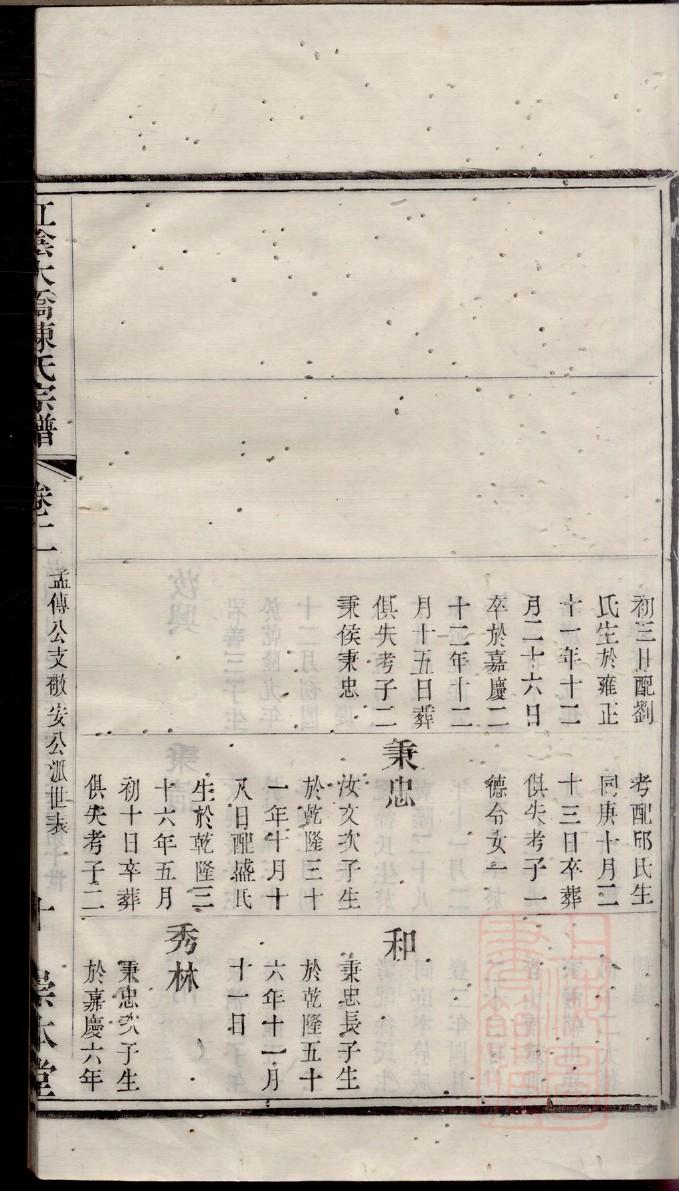 初三日配劉
氏生於雍正
十一年十二
月二十六日
卒於嘉慶二
十二年十二
月十五日葬
俱失考子二
秉侯秉忠
考配邱氏生
同庚十月二
十三日卒葬
俱失考子一
德令女一
秉忠
汝文次子生
於乾隆三十
一年十月十
八日配盛氏
生於乾隆三
十六年五月
初十日卒葬
俱失考子二
和
秉忠長子生
於乾隆五十
六年十一月
十一日
秀林
秉忠次子生
於嘉慶六年
江陰大喬陳氏宗譜
卷二
孟傳公支敬安公派世表
十
崇本堂